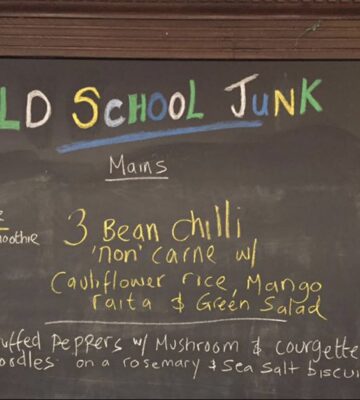 LD SCHOOL JUNK
Mains
3 Bean chilli
'non' carne w/
Cauliflower rice, Mango
raita & Green Salad
uffed peppers w/ Mushroom & courgette
oodles on a rosemary & sea salt biscui